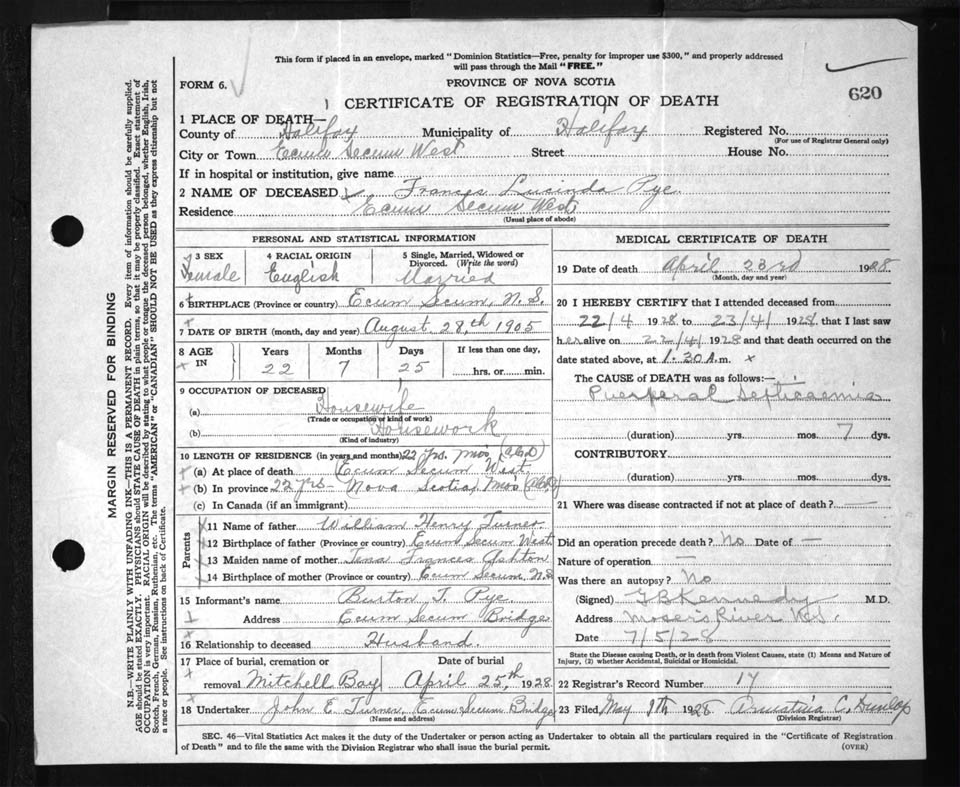 This form if placed in an envelope, marked "Dominion Statistics—Free, penalty for improper use $300," and properly addressed
will pass through the Mail "FREE."
FORM 6.
PROVINCE OF NOVA SCOTIA
CERTIFICATE OF REGISTRATION OF DEATH
620
1 PLACE OF DEATH—
County of Halifax Municipality of Halifax Registered No.
(For use of Registrar General only)
City or Town Ecum Secum West Street House No.
If in hospital or institution, give name
2 NAME OF DECEASED Frances Lucinda Pye
Residence Ecum Secum West
(Usual place of abode)
PERSONAL AND STATISTICAL INFORMATION
3 SEX 4 RACIAL ORIGIN 5 Single, Married, Widowed or
Divorced. (Write the word)
Female English Married
6 BIRTHPLACE (Province or country) Ecum Secum, N.S.
7 DATE OF BIRTH (month, day and year) August 28,th 1905
8 AGE IN Years Months Days If less than one day,
22 7 25 hrs. or min.
9 OCCUPATION OF DECEASED
(a) Housewife
(Trade or occupation or kind of work)
(b) Housework
(Kind of industry)
10 LENGTH OF RESIDENCE (in years and months) 22 yrs. 7 mos.
(a) At place of death Ecum Secum West
(b) In province 22 yrs - Nova Scotia, 7 mos
(c) In Canada (if an immigrant)
Parents
11 Name of father William Henry Turner
12 Birthplace of father (Province or country) Ecum Secum West
13 Maiden name of mother Tena Frances Ashton
14 Birthplace of mother (Province or country) Ecum Secum, N.S
15 Informant's name Burton T. Pye
Address Ecum Secum Bridge
16 Relationship to deceased Husband.
17 Place of burial, cremation or Date of burial
removal Mitchell Bay April 25,th 1928
18 Undertaker John E Turner, Ecum Secum Bridge
(Name and address)
MEDICAL CERTIFICATE OF DEATH
19 Date of death April 23rd 1928
(Month, day and year)
20 I HEREBY CERTIFY that I attended deceased from
22/4 1928 to 23/4/ 1928, that I last saw
her alive on 22/4/ 1928 and that death occurred on the
date stated above, at 1.30 A.m.
The CAUSE of DEATH was as follows:
Puerperal Septicaemia
(duration) yrs. mos. 7 dys.
CONTRIBUTORY
(duration) yrs. mos. dys.
21 Where was disease contracted if not at place of death? —
Did an operation precede death? No Date of —
Nature of operation —
Was there an autopsy? No
(Signed) J B Kennedy M.D.
Address Mosers River N.S.
Date 7/5/28
State the Disease causing Death, or in death from Violent Causes, state (1) Means and Nature of
Injury, (2) whether Accidental, Suicidal or Homicidal.
22 Registrar's Record Number 17
23 Filed May 9th 1928 C. Dunlop
(Division Registrar)
SEC. 46—Vital Statistics Act makes it the duty of the Undertaker or person acting as Undertaker to obtain all the particulars required in the "Certificate of Registration
of Death" and to file the same with the Division Registrar who shall issue the burial permit.
(OVER)
MARGIN RESERVED FOR BINDING
N.B.—WRITE PLAINLY WITH UNFADING INK—THIS IS A PERMANENT RECORD. Every item of information should be carefully supplied.
AGE should be stated EXACTLY. PHYSICIANS should STATE CAUSE OF DEATH in plain terms, so that it may be properly classified. Exact statement of
OCCUPATION is very important. RACIAL ORIGIN will be described by stating to what people or tongue the deceased person belonged, whether English, Irish,
Scotch, French, German, Russian, Ruthenian, etc. The terms "AMERICAN" or "CANADIAN" SHOULD NOT BE USED as they express citizenship but not
a race or people. See instructions on back of Certificate.